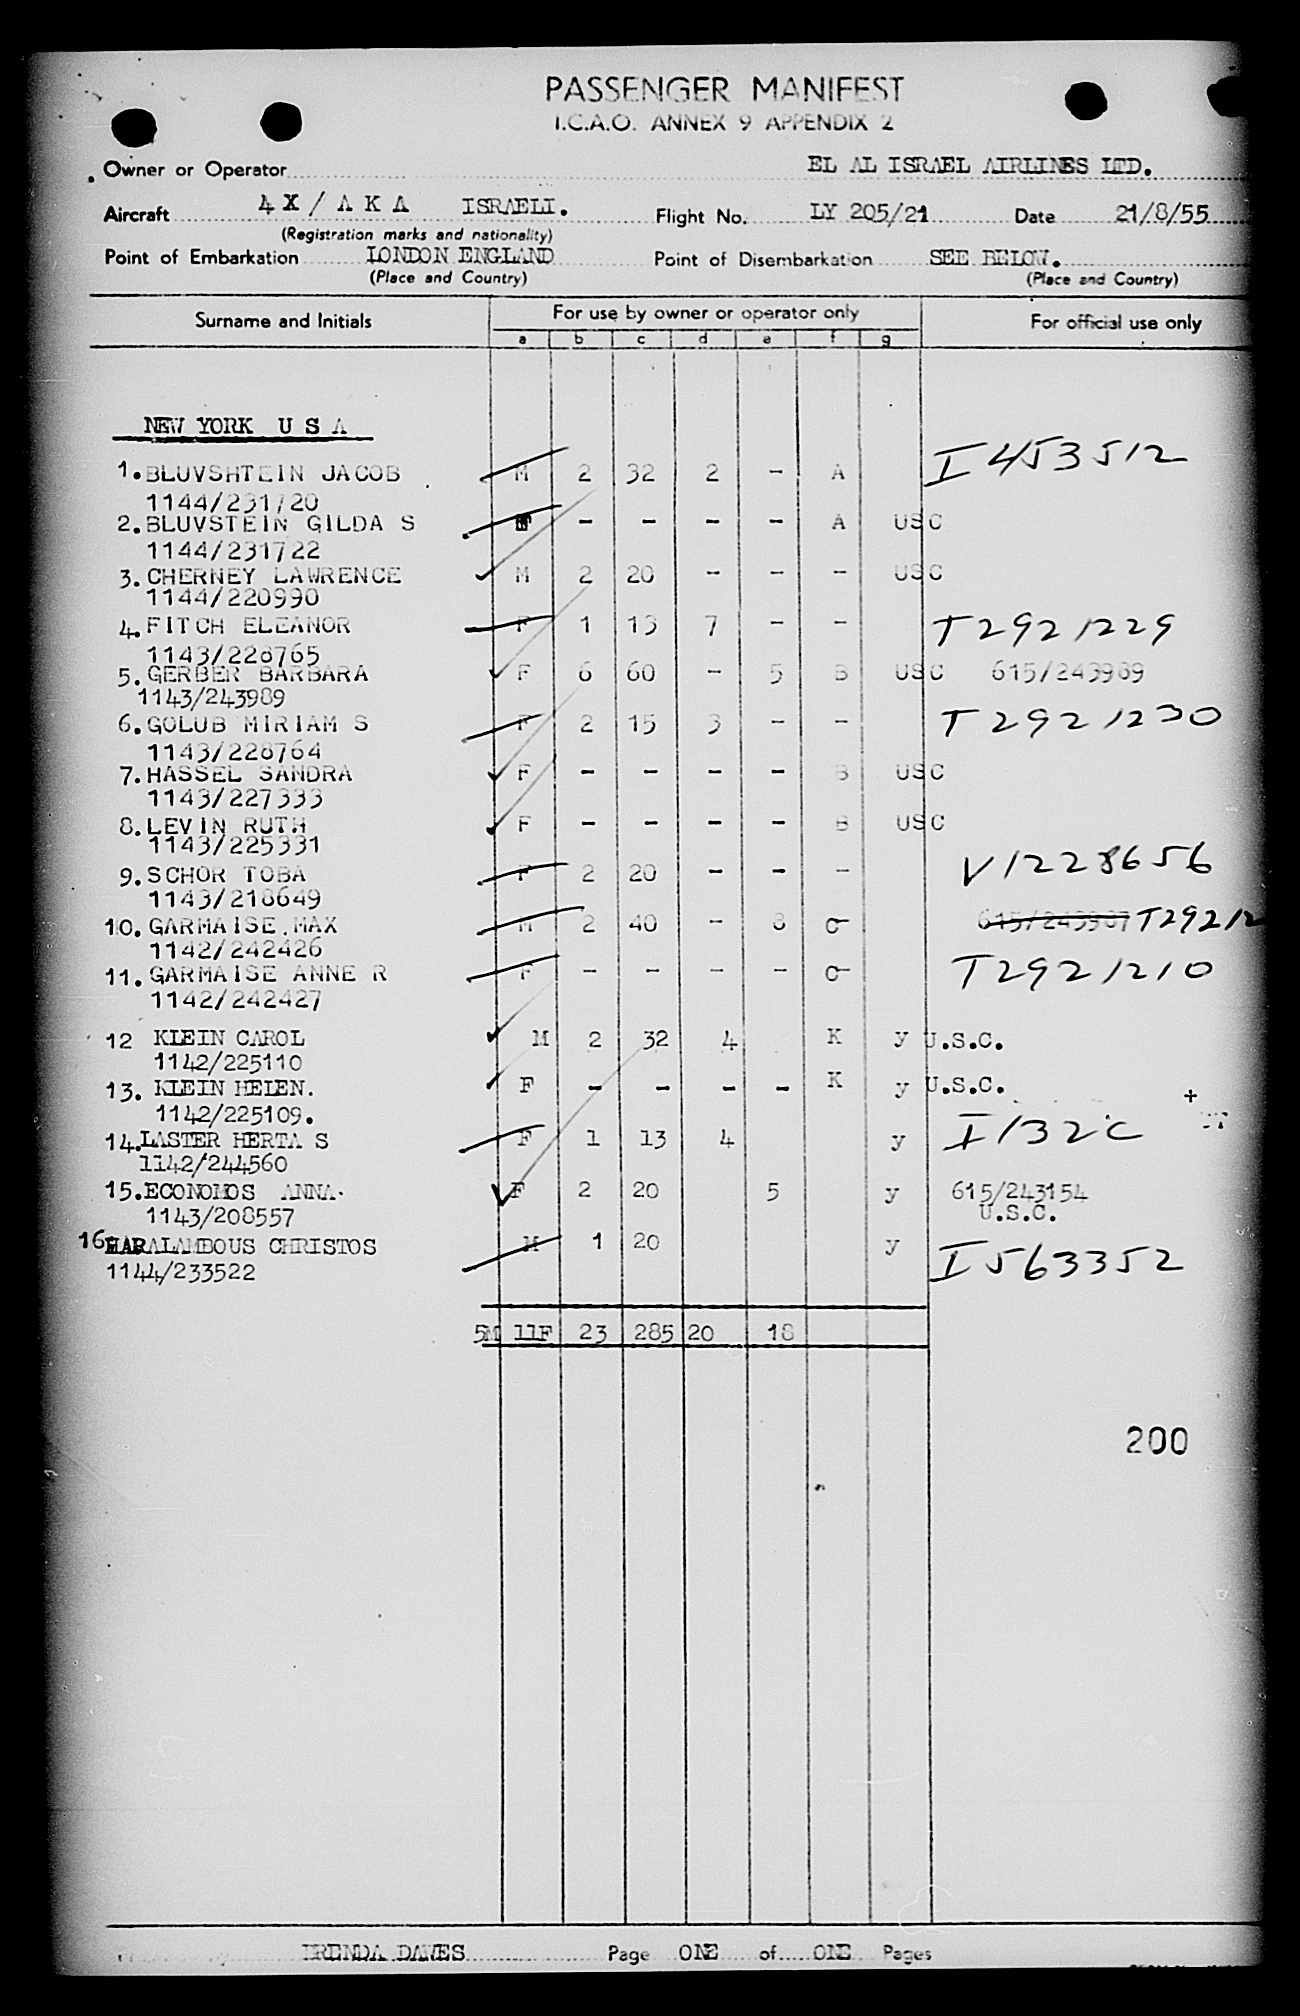 PASSENGER MANIFEST
I.C.A.O. ANNEX 9 APPENDIX 2
Owner or Operator EL AL ISRAEL AIRLINES LTD.
Aircraft 4X/AKA ISRAELI. Flight No. LY 205/21 Date 21/8/55
(Registration marks and nationality)
Point of Embarkation LONDON ENGLAND Point of Disembarkation SEE BELOW.
(Place and Country) (Place and Country)
Surname and Initials For use by owner or operator only For official use only
a b c d e f g
NEW YORK U S A
1. BLUVSHTEIN JACOB M 2 32 2 - A I 453512
1144/231720
2. BLUVSTEIN GILDA S F - - - - A USC
1144/231722
3. CHERNEY LAWRENCE M 2 20 - - - USC
1144/220990
4. FITCH ELEANOR F 1 13 7 - - T2921229
1143/228765
5. GERBER BARBARA F 6 60 - 5 B USC 615/243989
1143/243989
6. GOLUB MIRIAM S F 2 15 3 - - T2921230
1143/228764
7. HASSEL SANDRA F - - - - B USC
1143/227333
8. LEVIN RUTH F - - - - B USC
1143/225331
9. SCHOR TOBA F 2 20 - - - V1228656
1143/218649
10. GARMAISE.MAX M 2 40 - 8 C 615/243987 T29212
1142/242426
11. GARMAISE ANNE R F - - - - C T2921210
1142/242427
12 KLEIN CAROL M 2 32 4 K y U.S.C.
1142/225110
13. KLEIN HELEN. F - - - - K y U.S.C.
1142/225109.
14. LASTER HERTA S F 1 13 4 y I132C
1142/244560
15. ECONOMOS ANNA. F 2 20 5 y 615/243154
1143/208557 U.S.C.
16 HARALAMBOUS CHRISTOS M 1 20 y I563352
1144/233522
5M 11F 23 285 20 18
200
BRENDA DAWES Page ONE of ONE Pages